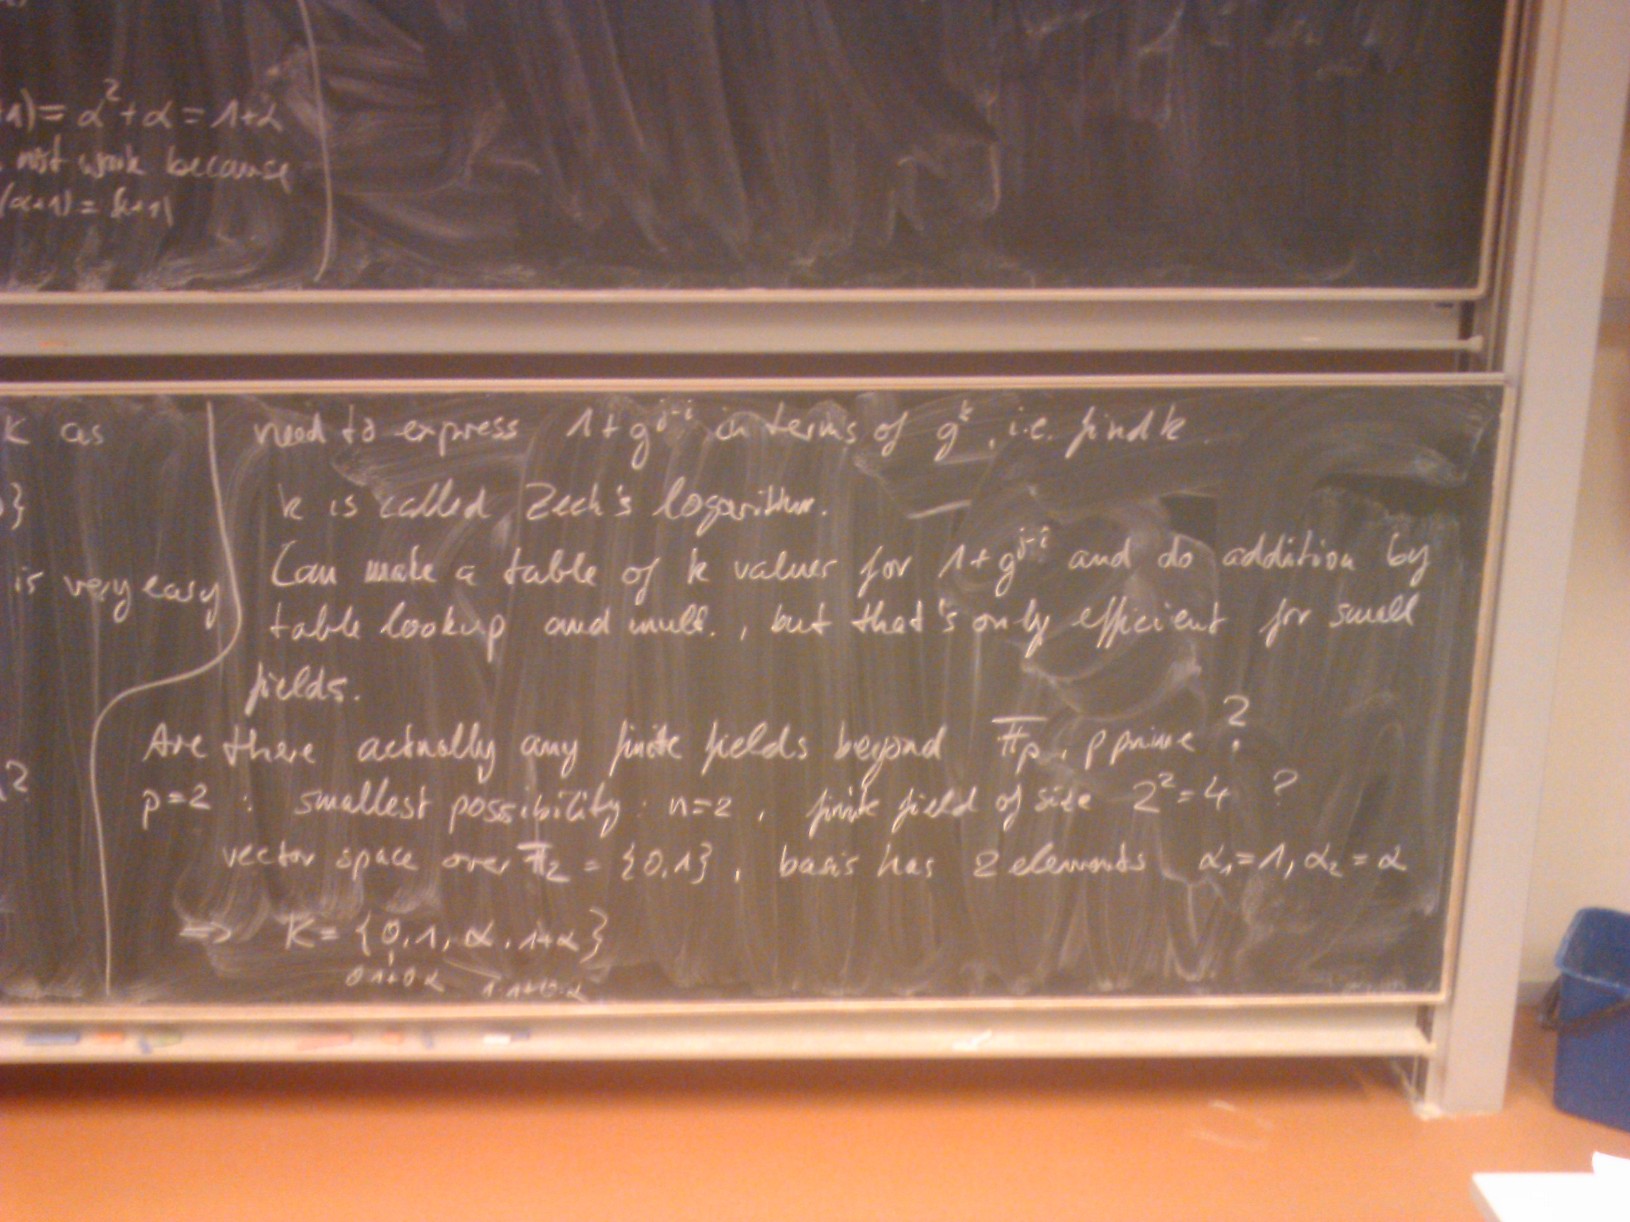 1) = α² + α = 1+α
not work because
(α+1) = (α+1)
K as
}
is very easy
?
need to express 1+g^{j-i} in terms of g^k, i.e. find k.
k is called Zech's logarithm.
Can make a table of k values for 1+g^{j-i} and do addition by
table lookup and mult., but that's only efficient for small
fields.
Are there actually any finite fields beyond 𝔽_p, p prime?
p=2 : smallest possibility: n=2, finite field of size 2²=4 ?
vector space over 𝔽₂ = {0,1}, basis has 2 elements α₁=1, α₂=α
⇒ K = {0, 1, α, 1+α}
0·1+0·α 1·1+0·α